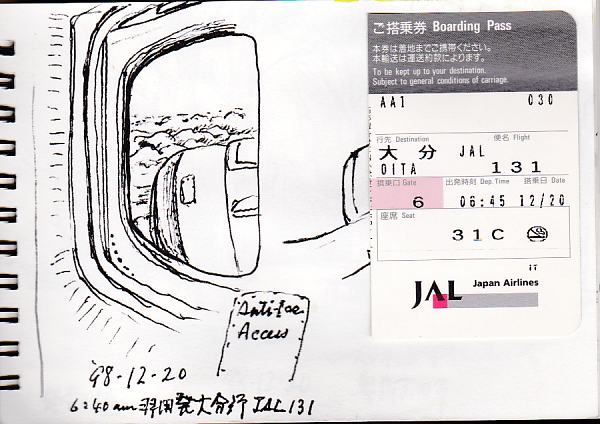 ご搭乗券 Boarding Pass
本券は着地までご携帯ください。
本輸送は運送約款によります。
To be kept up to your destination.
Subject to general conditions of carriage.
AA1 030
行先 Destination 便名 Flight
大分 JAL
OITA 131
搭乗口 Gate 出発時刻 Dep. Time 搭乗日 Date
6 06:45 12/20
座席 Seat
31C
JAL Japan Airlines
Anti-Ice
Access
'98-12-20
6:40 am 羽田発大分行 JAL 131